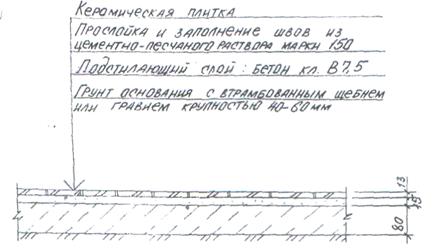 Керамическая плитка
Прослойка и заполнение швов из
цементно-песчаного раствора марки 150
Подстилающий слой: бетон кл. В7,5
Грунт основания с втрамбованным щебнем
или гравием крупностью 40-60мм
13
15
80